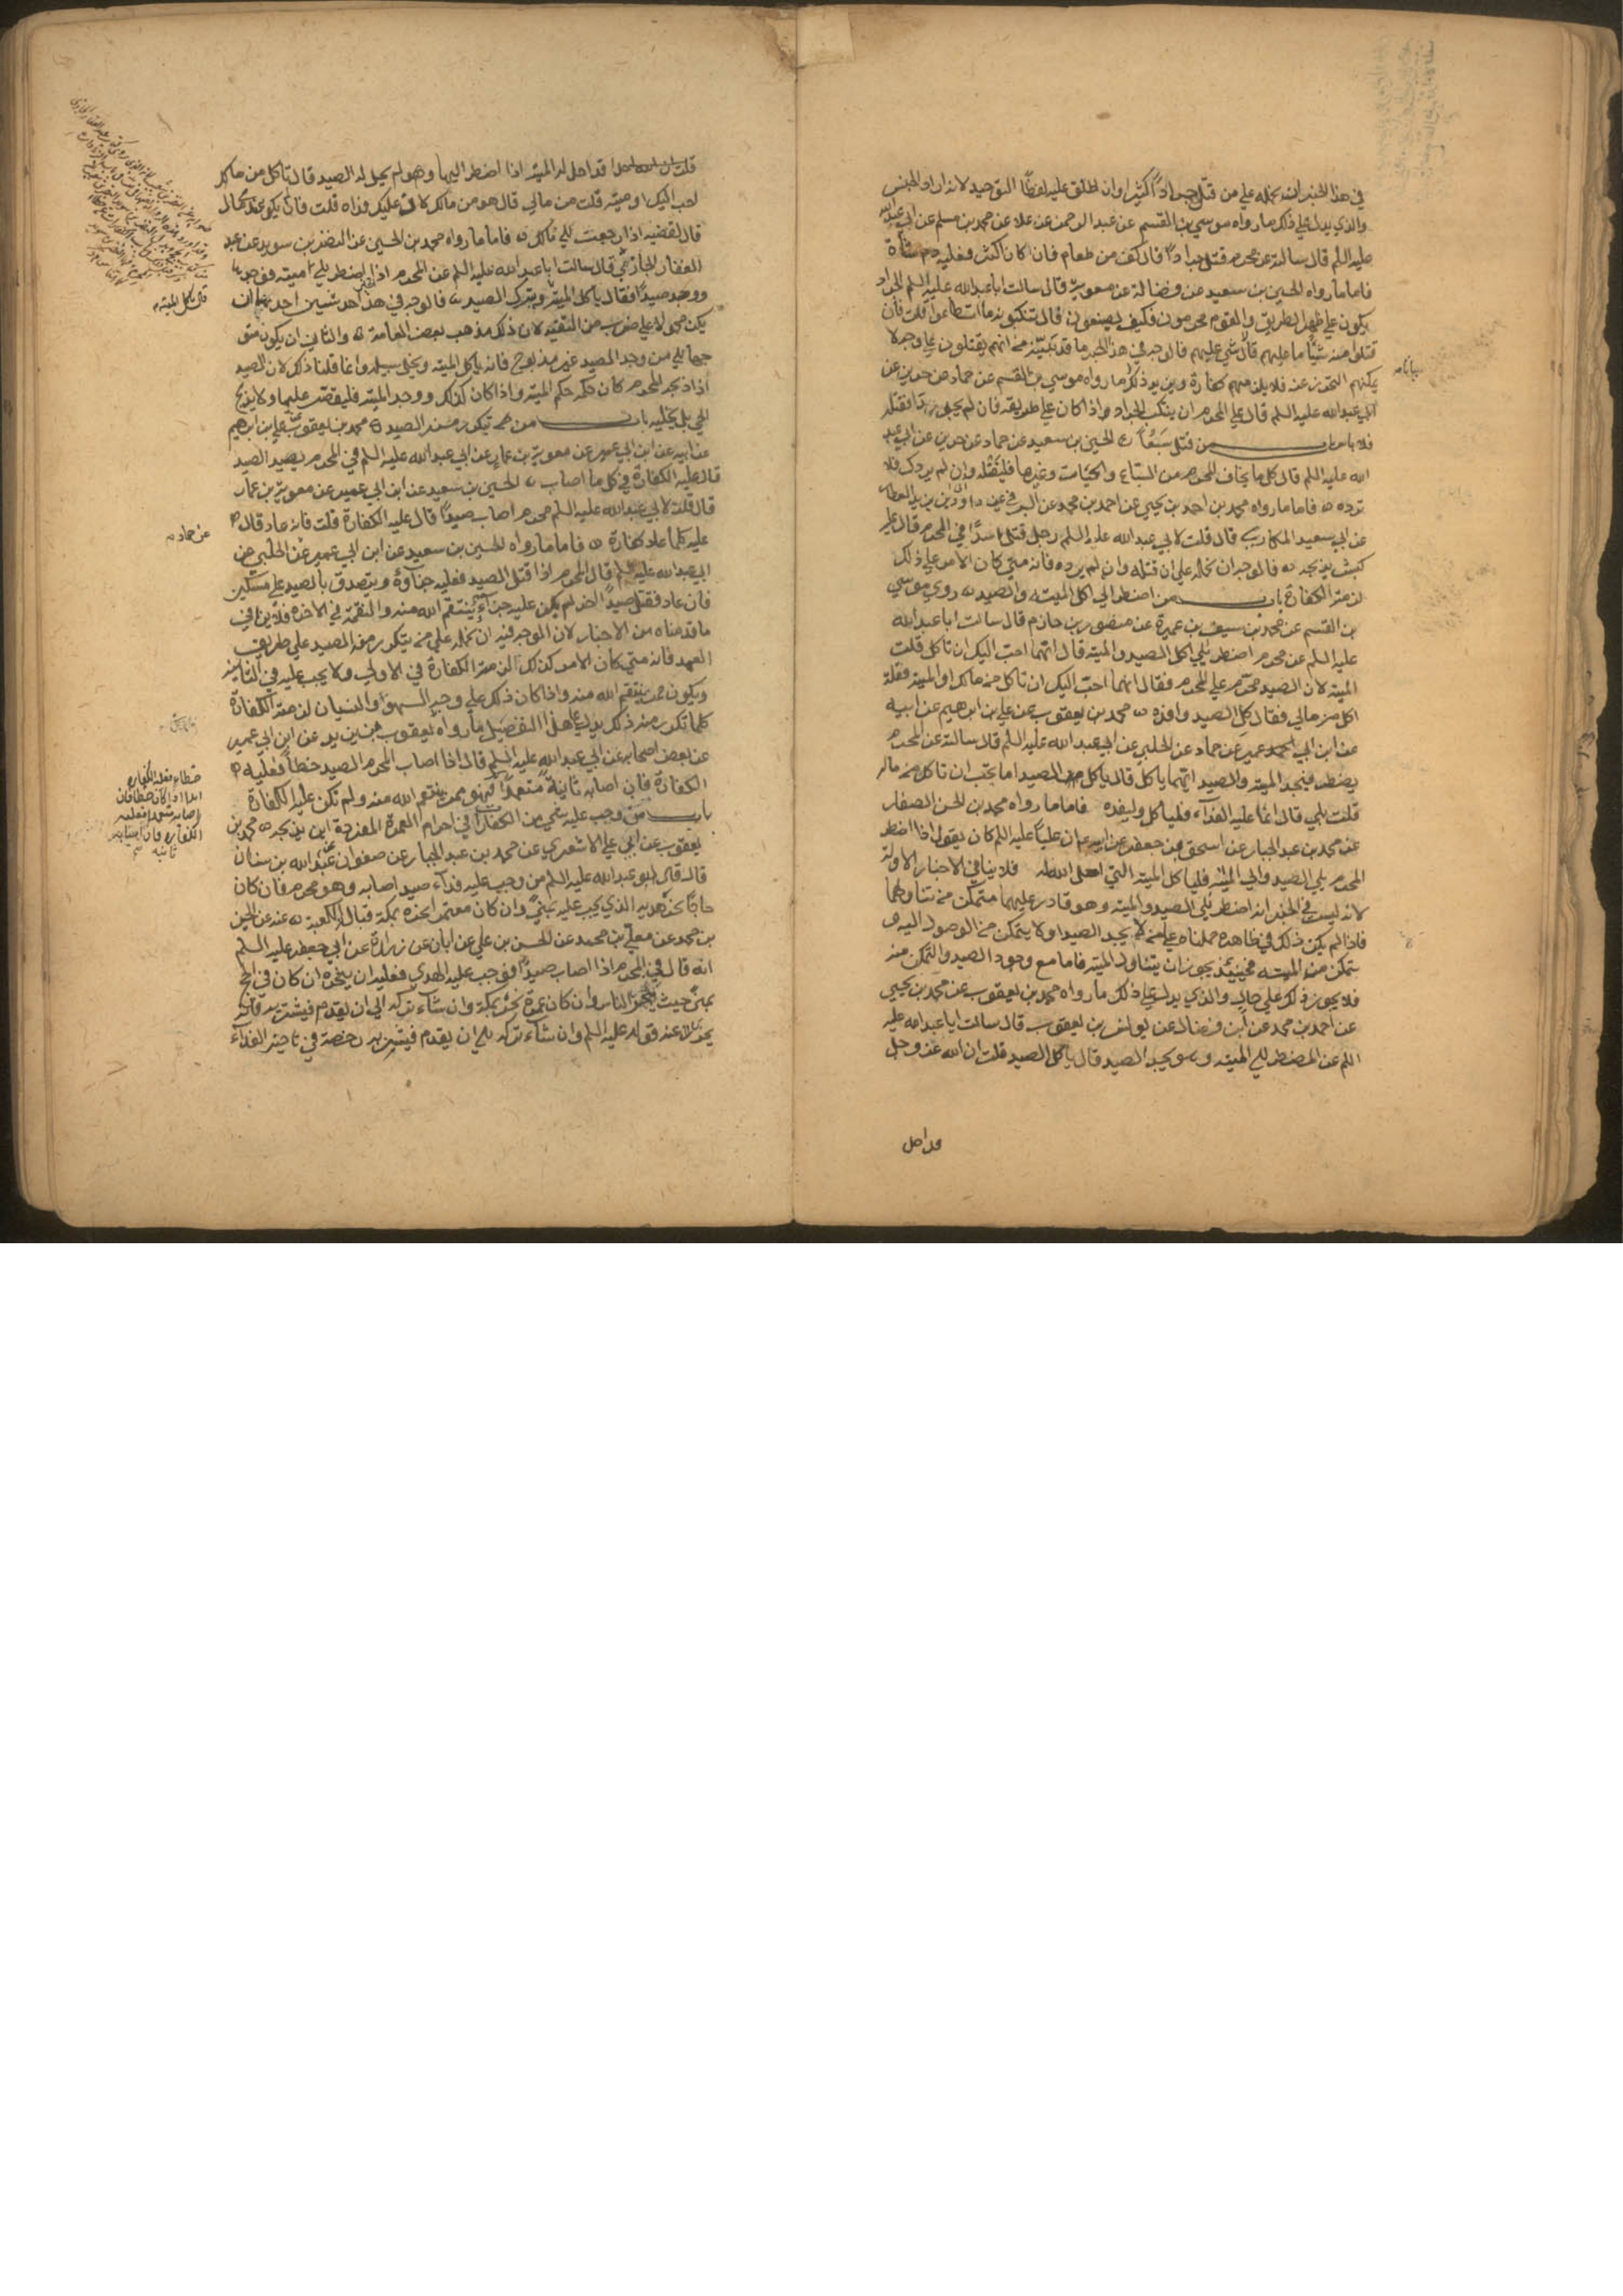 في هذا الخبر ان نحمله علي من قتل جرادًا كثيرا وان اطلق عليه لفظ التوحيد لانه اراد الجنس
والذي يدل علي ذلك ما رواه موسي بن القسم عن عبد الرحمن عن علا عن محمد بن مسلم عن ابي عبد الله
عليه السلم قال سالته عن محرم قتل جرادًا قال كف من طعام فان كان اكثر فعليه دم شاة
فاما ما رواه الحسين بن سعيد عن فضالة عن معوية قال سالت ابا عبد الله عليه السلم الجراد
يكون علي ظهر الطريق والقوم محرمون فكيف يصنعون قال يتنكبونه ما استطاعوا قلت فان
قتلوا منه شيئًا ما عليهم قال لا شي عليهم فالوجه في هذا الخبر ما قد تبين من انهم يقتلون علي وجه لا
يمكنهم التحرز عنه فلا يلزمهم كفارة ويزيد ذلك ما رواه موسي بن القسم عن حماد عن حريز عن
ابي عبد الله عليه السلم قال علي المحرم ان يتنكب الجراد اذا كان علي طريقه فان لم يجد بدا فقتله
فلا باس باب من قتل سبعًا الحسين بن سعيد عن حماد عن حريز عن ابي عبد
الله عليه السلم قال كل ما يخاف المحرم من السباع والحيات وغيرها فليقتله وان لم يردك فلا
ترده فاما ما رواه محمد بن احمد بن يحيي عن احمد بن محمد عن البرقي عن داود بن يزيد العطار
عن ابي سعيد المكاري قال قلت لابي عبد الله عليه السلم رجل قتل اسدًا في الحرم قال عليه
كبش يذبحه فالوجه ان نحمله علي ان قتله وان لم يرده فانه متي كان الامر علي ذلك
لزمته الكفارة باب من اضطر الي اكل الميته والصيد روي موسي
بن القسم عن محمد بن سيف بن عميرة عن منصور بن حازم قال سالت ابا عبد الله
عليه السلم عن محرم اضطر الي اكل الصيد والميته قال ايهما احب اليك ان تاكل قلت
الميته لان الصيد محرم علي المحرم فقال ايهما احب اليك ان تاكل من مالك او الميته فقلت
اكل من مالي فقال كل الصيد وافده محمد بن يعقوب عن علي بن ابرهيم عن ابيه
عن ابن ابي عمير عن حماد عن الحلبي عن ابي عبد الله عليه السلم قال سالته عن المحرم
يضطر فيجد الميته والصيد ايهما ياكل قال ياكل من الصيد اما يحب ان تاكل من ماله
قلت بلي قال انما عليه الفدآء فلياكل وليفده فاما ما رواه محمد بن الحسن الصفار
عن محمد بن عبد الجبار عن اسحق عن جعفر عن ابيه ان عليًا عليه السلم كان يقول اذا اضطر
المحرم الي الصيد والي الميته فلياكل الميته التي احل الله له فلا ينافي الاخبار الاوله
لانه ليس في الخبر انه اضطر الي الصيد والميته وهو قادر عليهما متمكن من تناولهما
فاذا لم يكن ذلك في ظاهره حملناه علي من لا يجد الصيد او لا يتمكن من الوصول اليه و
يتمكن من الميته فحينئذ يجوز ان يتناول الميته فاما مع وجود الصيد والتمكن منه
فلا يجوز ذلك علي حال والذي يدل علي ذلك ما رواه محمد بن يعقوب عن محمد بن يحيي
عن احمد بن محمد عن ابن فضال عن يونس بن يعقوب قال سالت ابا عبد الله عليه
السلم عن المضطر الي الميته وهو يجد الصيد قال ياكل الصيد قلت ان الله عز وجل
قد احل
قد احل له الميته اذا اضطر اليها وهو لم يحل له الصيد قال تاكل من مالك
احب اليك او ميته قلت من مالي قال هو من مالك لان عليك فداه قلت فان لم يكن عندي مال
قال تقضيه اذا رجعت الي مالك فاما ما رواه محمد بن الحسين عن النضر بن سويد عن عبد
الغفار الجازي قال سالت ابا عبد الله عليه السلم عن المحرم اذا اضطر الي ميته فوجدها
ووجد صيدًا فقال ياكل الميته ويترك الصيد فالوجه في هذا الخبر احد شيئين احدهما ان
يكون محمولا علي ضرب من التقية لان ذلك مذهب بعض العامة والثاني ان يكون متو
جها الي من وجد الصيد غير مذبوح فانه ياكل الميته ويخلي سبيله وانما قلنا ذلك لان الصيد
اذا ذبحه المحرم كان حكمه حكم الميته واذا كان كذلك ووجد الميته فليقتصر عليها ولا يذبح
الحي بل يخليه باب من تكرر منه الصيد محمد بن يعقوب عن علي بن ابرهيم
عن ابيه عن ابن ابي عمير عن معوية بن عمار عن ابي عبد الله عليه السلم في المحرم يصيد الصيد
قال عليه الكفارة في كل ما اصاب الحسين بن سعيد عن ابن ابي عمير عن معوية بن عمار
قال قلت لابي عبد الله عليه السلم محرم اصاب صيدًا قال عليه الكفارة قلت فانه عاد قال
عليه كلما عاد كفارة فاما ما رواه الحسين بن سعيد عن ابن ابي عمير عن الحلبي عن
ابي عبد الله عليه السلم قال المحرم اذا قتل الصيد فعليه جزآؤه ويتصدق بالصيد علي مسكين
فان عاد فقتل صيدًا اخر لم يكن عليه جزآء ينتقم الله منه والنقمة في الاخره فلا ينافي
ما قدمناه من الاخبار لان الوجه فيه ان نحمله علي من يتكرر منه الصيد علي طريق
العمد فانه متي كان الامر كذلك لزمته الكفارة في الاولي ولا يجب عليه في الثانيه
ويكون ممن ينتقم الله منه واذا كان ذلك علي وجه السهو او النسيان لزمته الكفارة
كلما تكرر منه ذلك يدل علي هذا التفصيل ما رواه يعقوب بن يزيد عن ابن ابي عمير
عن بعض اصحابه عن ابي عبد الله عليه السلم قال اذا اصاب المحرم الصيد خطأ فعليه
الكفارة فان اصابه ثانية متعمدًا فهو ممن ينتقم الله منه ولم تكن عليه الكفارة
باب من وجب عليه شي من الكفارات في احرام العمرة المفردة اين يذبحه محمد بن
يعقوب عن ابي علي الاشعري عن محمد بن عبد الجبار عن صفوان عن عبد الله بن سنان
قال قال ابو عبد الله عليه السلم من وجب عليه فدآء صيد اصابه وهو محرم فان كان
حاجًا نحر هديه الذي يجب عليه بمني وان كان معتمرا نحره بمكة قبال الكعبة عنه عن الحسين
بن محمد عن معلي بن محمد عن الحسن بن علي عن ابان عن زرارة عن ابي جعفر عليه السلم
انه قال في المحرم اذا اصاب صيدًا فوجب عليه الهدي فعليه ان ينحره ان كان في الحج
بمني حيث ينحر الناس وان كان عمرة نحره بمكة وان شآء تركه الي ان يقدم فيشتريه فانه
يجزي عنه قوله عليه السلم وان شآء تركه الي ان يقدم فيشتريه رخصة في تاخير الفدآء
قال ياكل الميته
عن حماد
خطاء فعليه الكفاره
ابدا اذا كان خطا فان
اصابه متعمدا فعليه
الكفاره فان اصابه
ثانيه